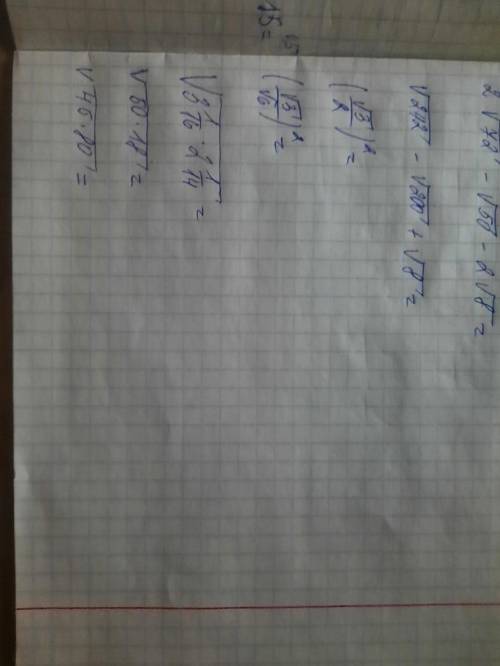 2√72 - √50 - 2√8 =
√242 - √200 + √8 =
(√3/2)² =
(√3/√6)² =
√3 1/16 · 2 1/14 =
√50·18 =
√45·80 =